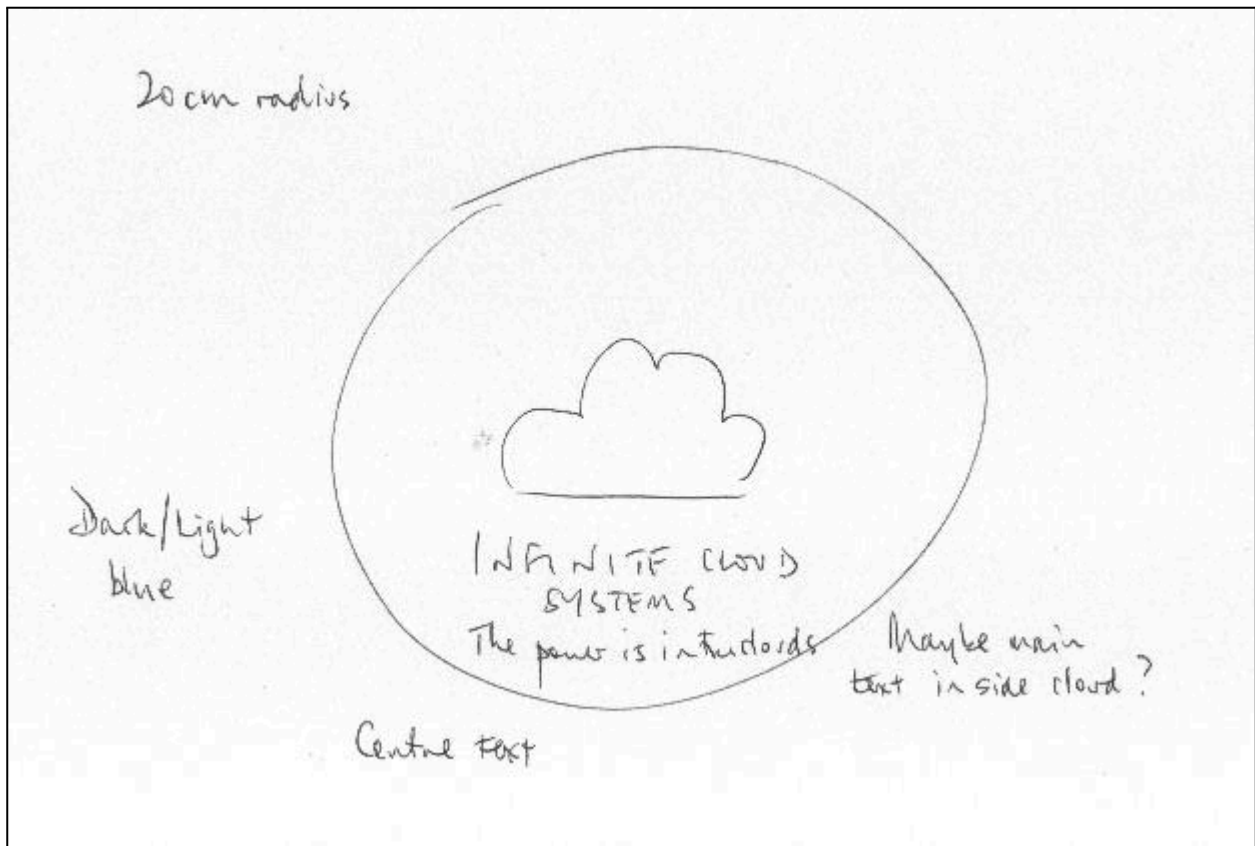 20cm radius
Dark/Light
blue
INFINITE CLOUD
SYSTEMS
The power is in the clouds
Maybe main
text inside cloud?
Centre text